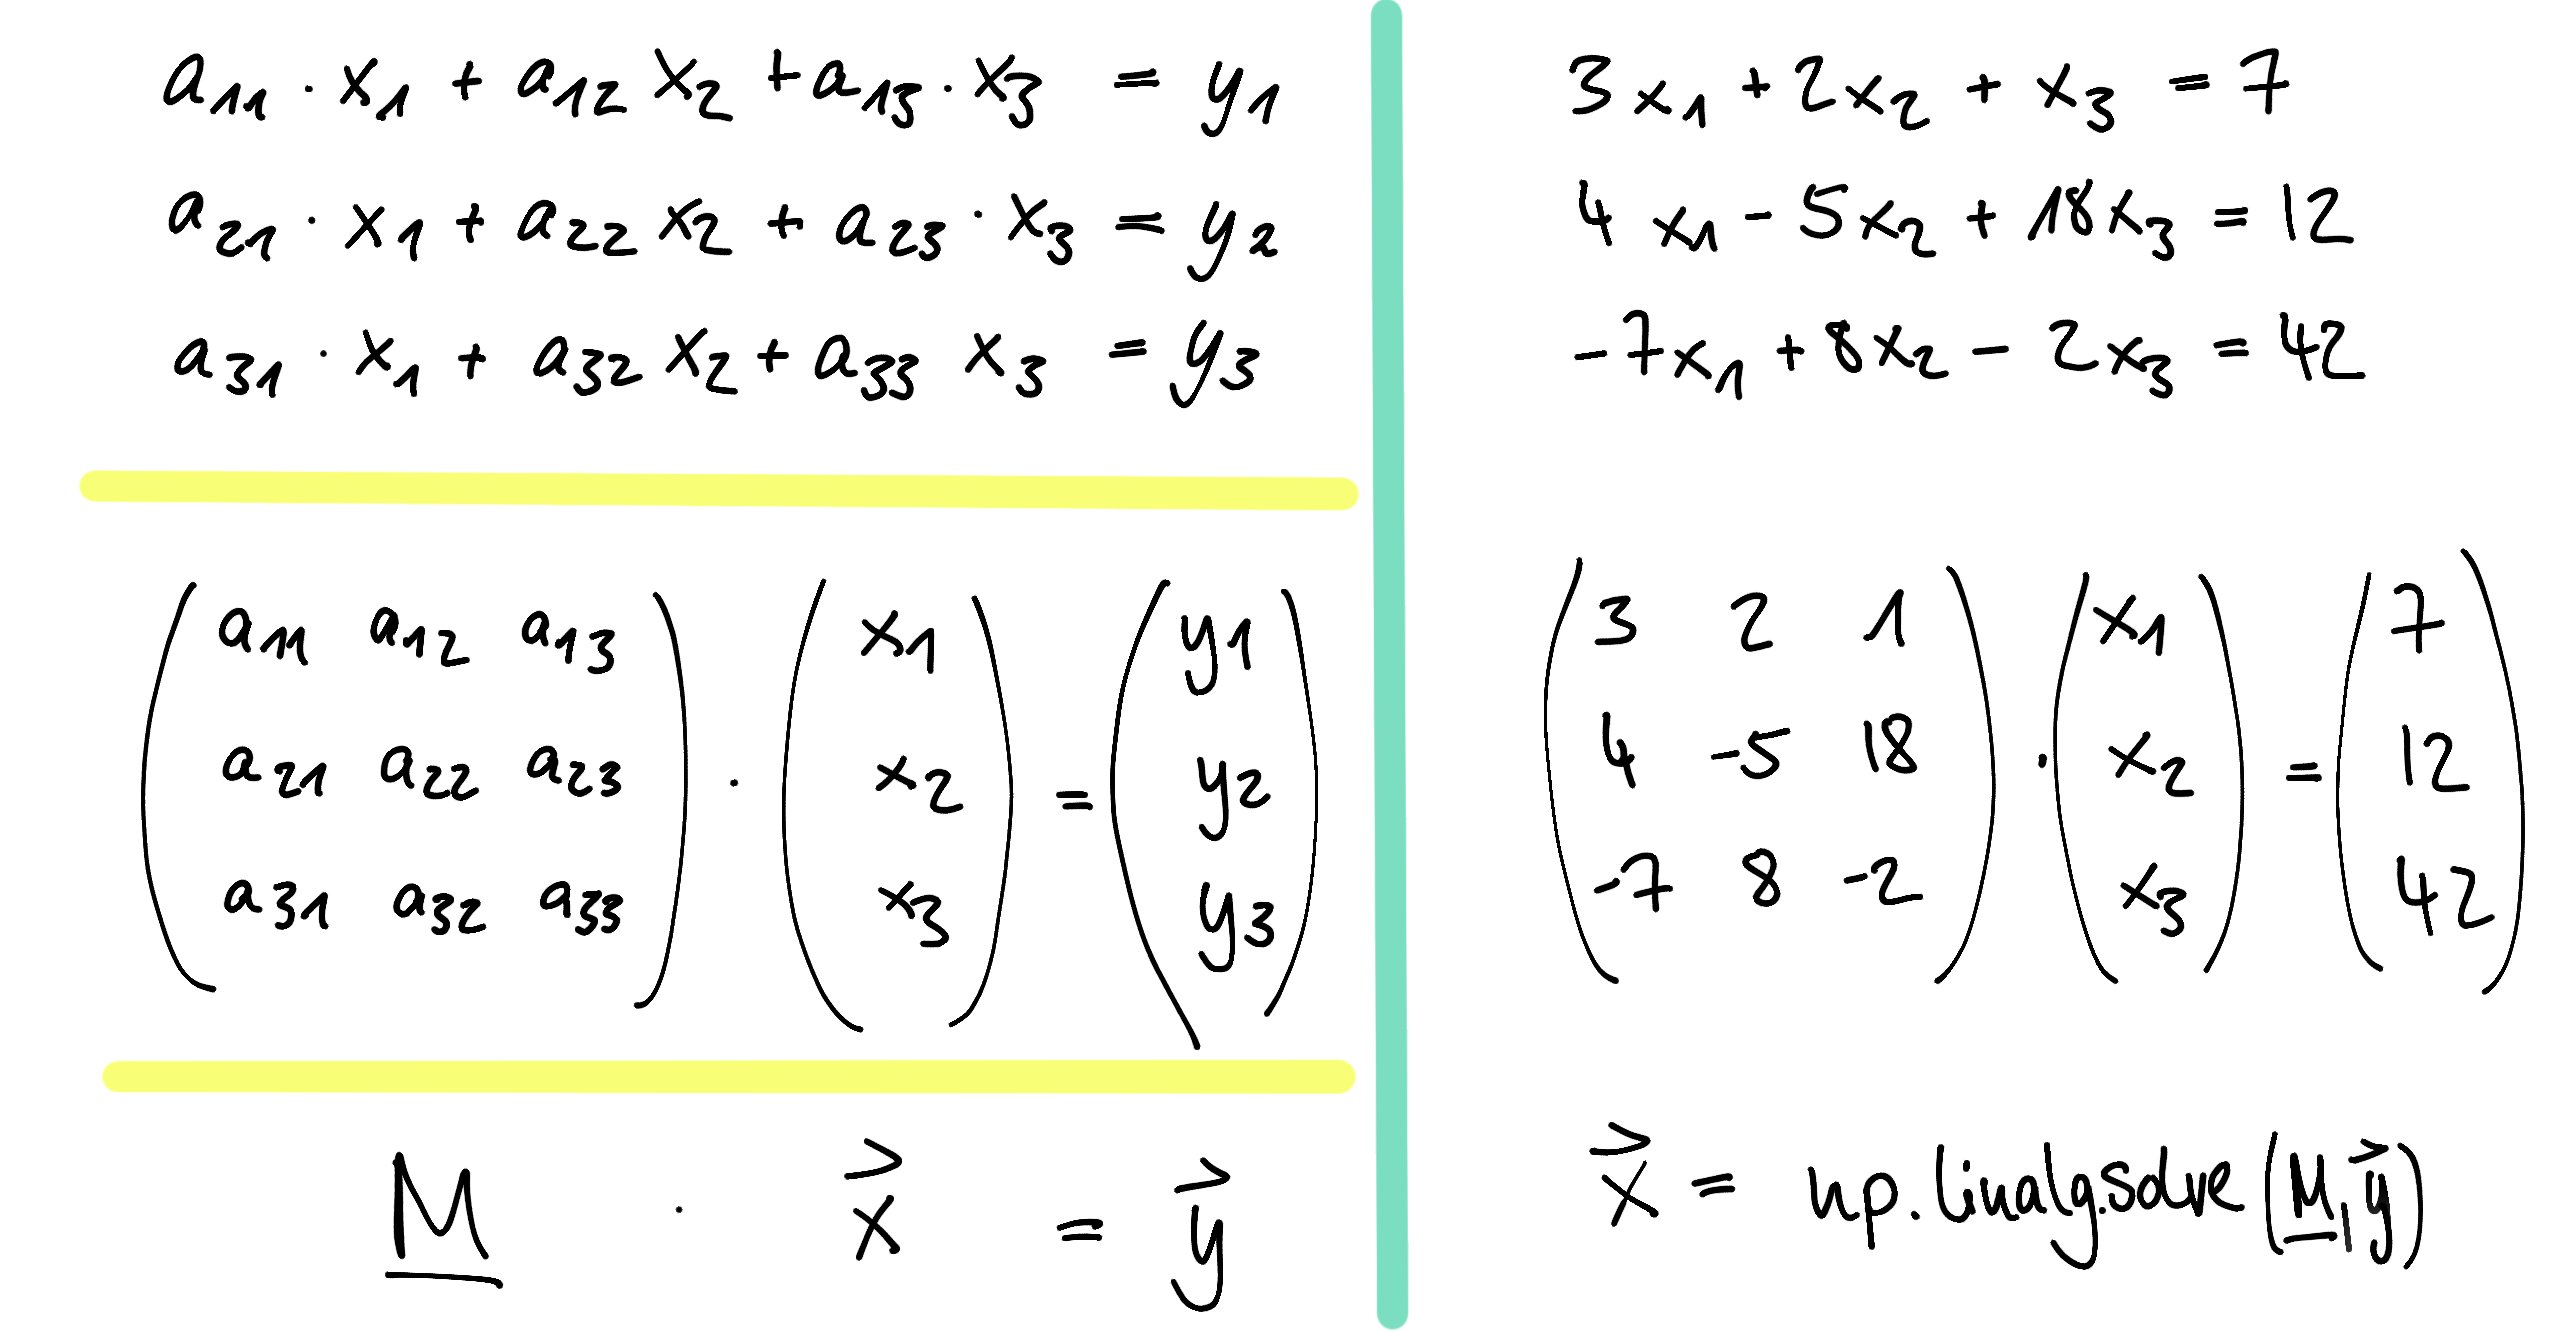 a11 · x1 + a12 x2 + a13 · x3 = y1
a21 · x1 + a22 x2 + a23 · x3 = y2
a31 · x1 + a32 x2 + a33 x3 = y3
( a11 a12 a13 ) ( x1 ) ( y1 )
( a21 a22 a23 ) · ( x2 ) = ( y2 )
( a31 a32 a33 ) ( x3 ) ( y3 )
M · x⃗ = y⃗
3x1 + 2x2 + x3 = 7
4x1 - 5x2 + 18x3 = 12
-7x1 + 8x2 - 2x3 = 42
( 3 2 1 ) ( x1 ) ( 7 )
( 4 -5 18 ) · ( x2 ) = ( 12 )
( -7 8 -2 ) ( x3 ) ( 42 )
x⃗ = np.linalg.solve(M, y⃗)